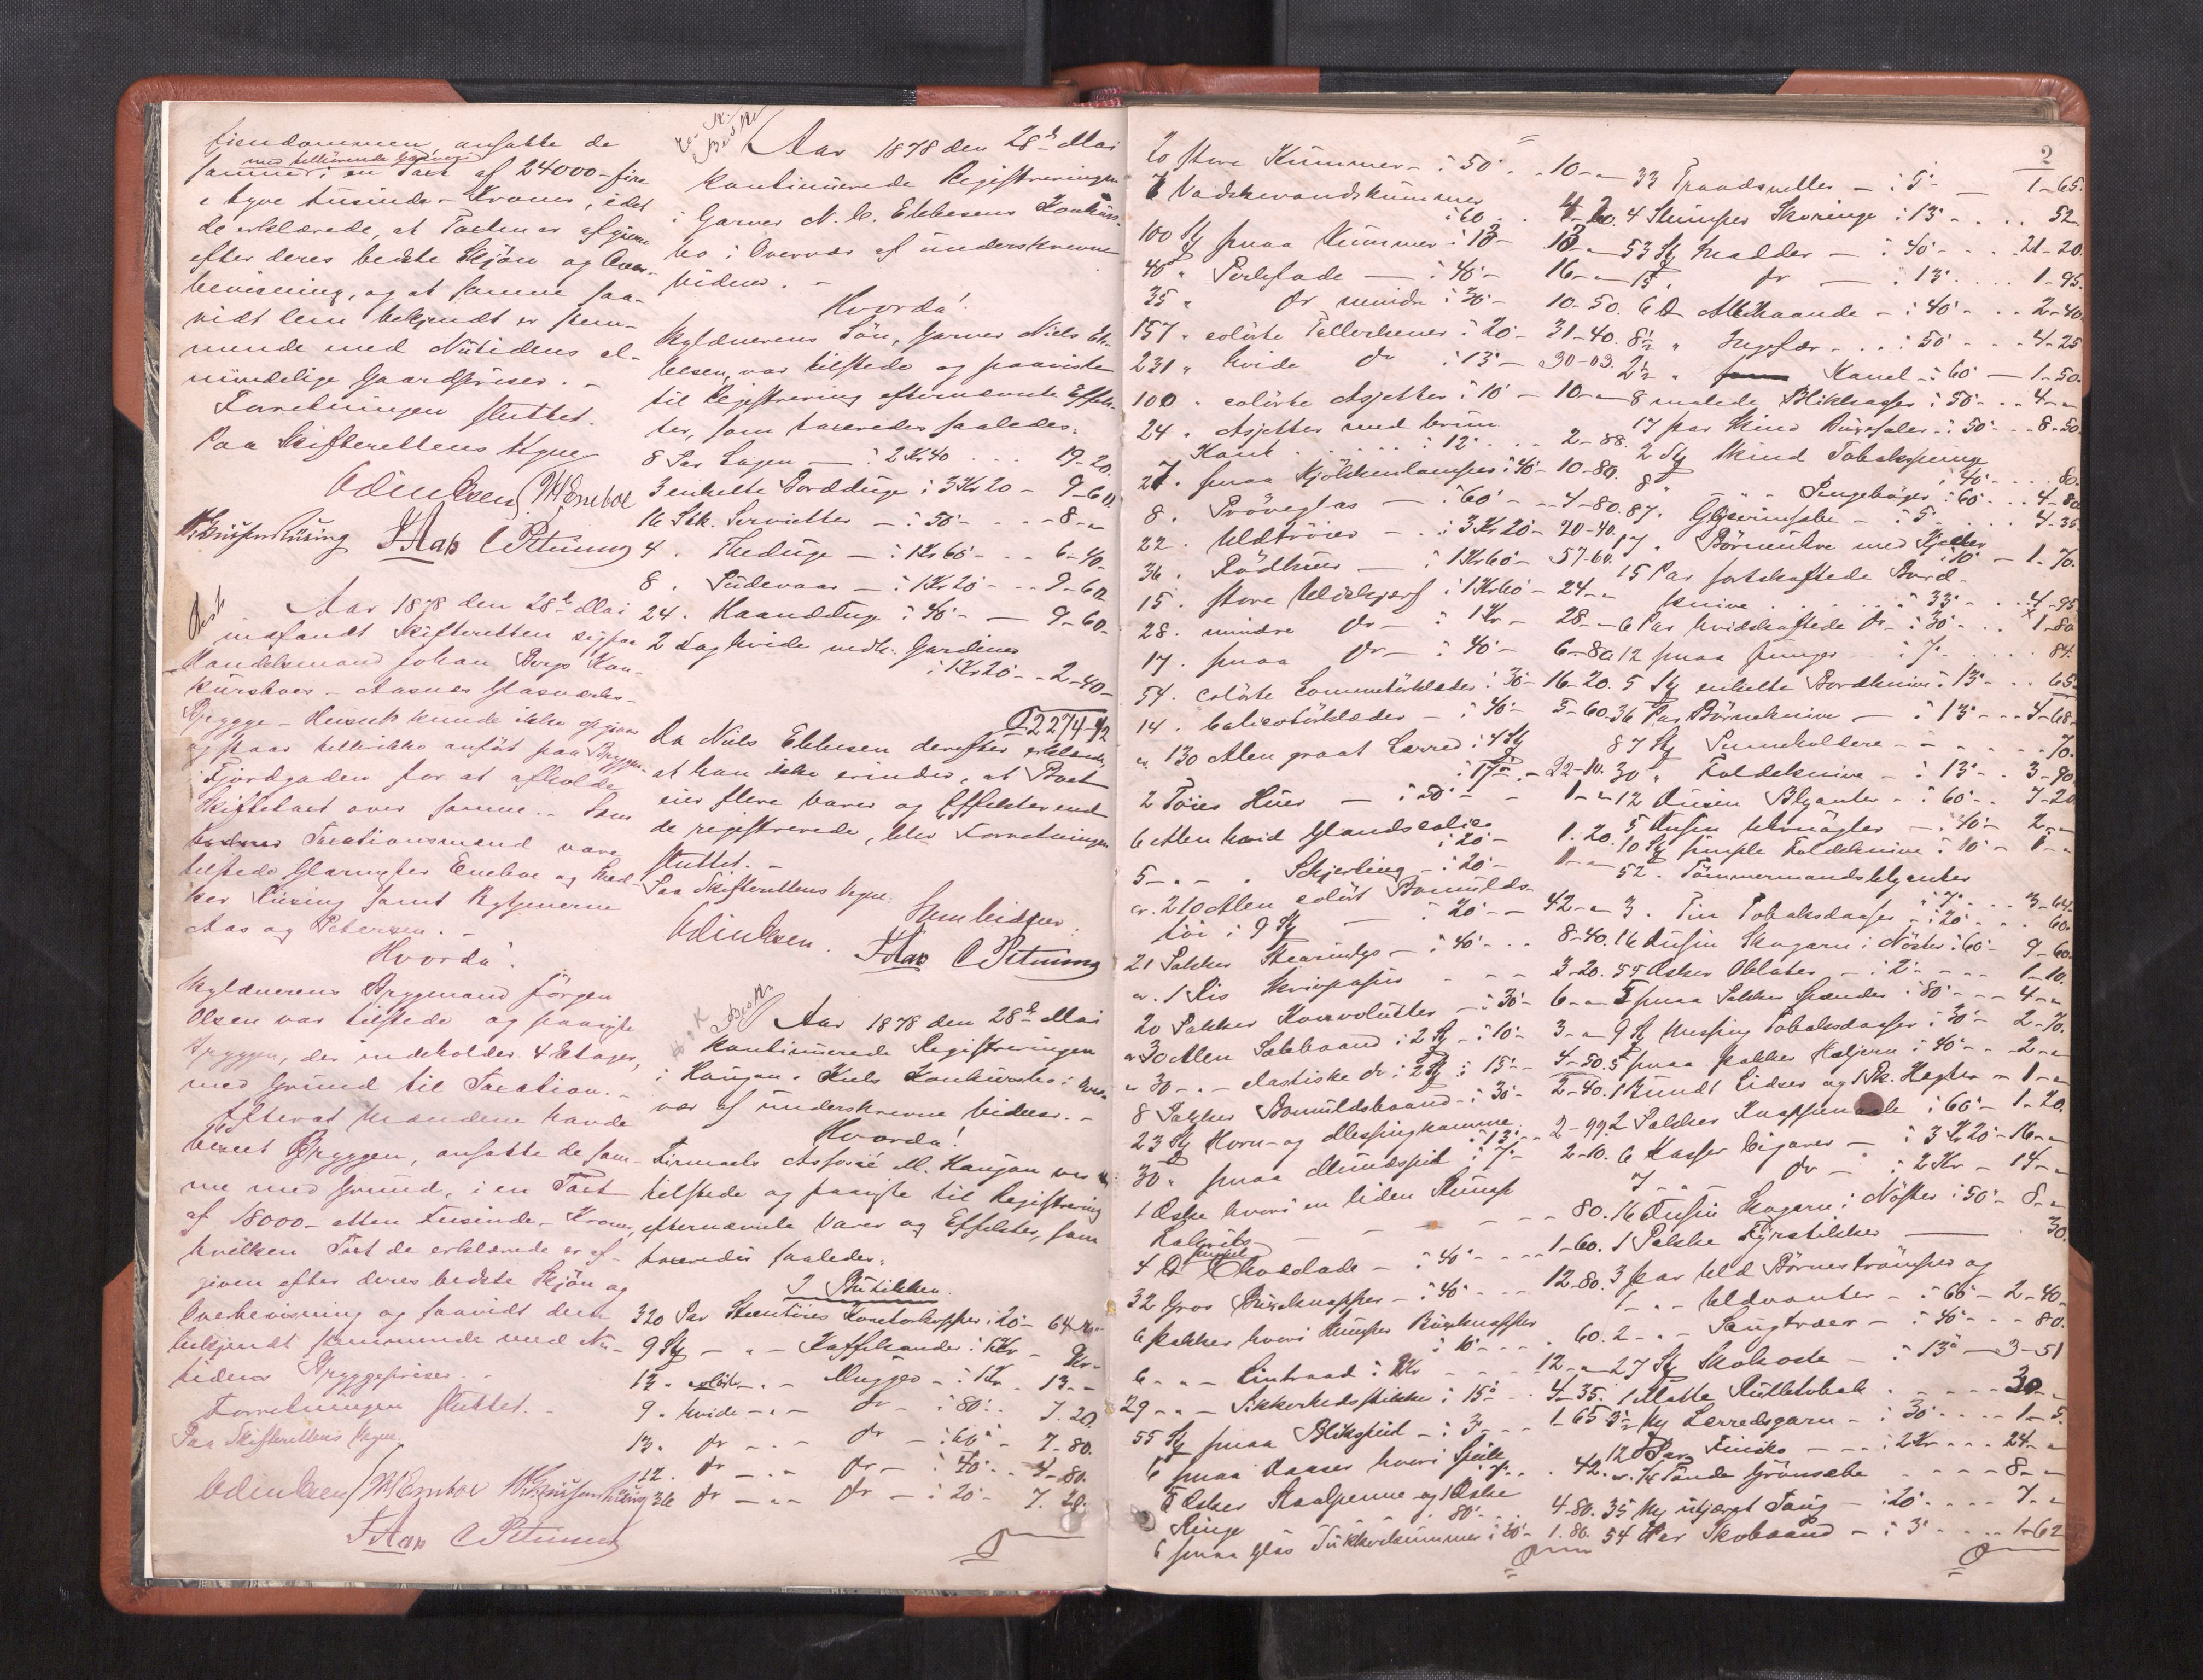 Eiendommen, ansatte de
med tilhørende
samme i en Taxt af 24000 - fire
& tyve tusinde - Kroner, idet
de erklærede, at Taxten er afgiven
efter deres bedste Skjøn og Over-
bevisning, og at samme saa-
vidt dem bekjendt er stem-
mende med Nutidens al-
mindelige Gaardpriser. -
Forretningen sluttet.
Paa Skifterettens Vegne
Aas C Petersen
Aar 1878 den 28de Mai
indfandt Skifteretten sig paa
Handelsmand Johan Bergs Kon-
kursboes - Aasnæs Glasværks -
Brygge - Husnr kunde ikke opgives
og staar hellerikke anført paa Bryggen -
i Fjordgaden for at afholde
Skiftetaxt over samme. - Som
Taxationsmænd vare
tilstede Glarmester Eneboe og Sned-
ker Tusing samt Rettsvidnerne
Aas og Petersen. -
Hvorda!
Skyldnerens Bryggemand Jørgen
Olsen var tilstede og paaviste
Bryggen, der indeholder 4 Etager,
med Grund til Taxation. -
Efterat Mændene havde
beseet Bryggen, ansatte de sam-
me med Grund, i en Taxt
af 18000 - atten tusinde - Kroner,
hvilken Taxt de erklærede er af-
given efter deres bedste Skjøn og
Overbevisning og saavidt dem
bekjendt stemmende med Nu-
tidens Bryggepriser. -
Forretningen sluttet. -
Paa Skifterettens Vegne.
Aas C Petersen
Aar 1878 den 28de Mai
kontinuerede Registreringen
i Garver N. C. Ebbesens Konkurs-
bo i Overvær af underskrevne
Vidner. -
Hvorda!
Skyldnerens Søn, Garver Niels Eb-
besen, var tilstede og paaviste
til Registrering efternævnte Effek-
ter, som taxeredes saaledes:
8 Par Lagen - à 2 Kr 40 . . . 19-20.
3 enkelte Bordduge à 3 Kr 20 - 9-60
16 Stk. Servietter - à 50 - - - 8 - "
4 . Theduge - à 1 Kr 60 - - 6-40.
8 . Pudevaar - à 1 Kr 20 - - 9-60
24 . Haandduge à 40 - - 9-60.
2 Fag hvide Gardiner
à 1 Kr 20 - - 2-40-
2274-92
Da Niels Ebbesen derefter erklærede,
at han ikke erindrer, at Boet
eier flere Varer og Effekter end
de registrerede, blev Forretningen
sluttet. -
Paa Skifterettens Vegne.
Som Vidner:
Aas C Petersen
Aar 1878 den 28de Mai
kontinuerede Registreringen
i Haugan & Kuls Konkursbo i Over-
vær af underskrevne Vidner. -
Hvorda!
Firmaets Associé M. Haugan var
tilstede og paaviste til Registrering
efternævnte Varer og Effekter, som
taxeredes saaledes.
I Butikken.
320 Par Stentøies Kopper à 20 - 64 Kr -
9 Stk - " - Kaffekander à 1 Kr - 9 Kr -
13 . - " - Mugger - à 1 Kr . 13 - -
9 . hvide - " - do - à 80 . . 7.20.
13 . do - . - do - à 60 - 7-80.
12 . do - . - do - à 40 . . 4-80.
36 do - . - do - à 20 - 7.20.
2
20 store Kummer - à 50 . . 10 - "
7 Vadskevandskummer
à 60 . . 4-20.
100 Stk smaa Kummer à 13 - 13 - "
40 " Perlefade - à 40 - 16 - "
35 " do mindre à 30 - 10-50.
157 . colørte Tallerkener à 20 - 31-40.
231 " hvide do à 13 - 30-03.
100 " colørte Asjetter à 10 - 10 - "
24 . Asjetter med brun
Kant . . . . . à 12 . . . 2-88.
27 . smaa Kjøkkenlamper à 40 - 10-80.
8 . Prøveglas - à 60 - - 4-80.
22 . Uldtrøier - . à 3 Kr 20 - 70-40.
36 . Rødhuer - à 1 Kr 60 - 57-60.
15 . store Uldskjerf à 1 Kr 60 - 24 - "
28 . mindre do - à 1 Kr - 28 - "
17 . smaa do - à 40 - 6-80.
54 . colørte Lommetørklæder à 30 - 16-20.
14 . Calicotørklæder - à 40 - 5-60.
ca. 130 Alen graat Lærred i 4 Stk
à 17 - 22-10.
2 Tøies Huer - à 50 - - 1 - "
6 Alen hvid Glandscalico
à 20 - 1.20.
5 - " - Schjerting - à 20 - 1 - "
ca. 210 Alen colørt Bomulds-
tøi i 9 Stk - à 20 - - 42 - "
21 Pakker Stearinlys - à 40 - . . 8-40.
ca. 1 Ris Skrivpapir - - - 3-20.
20 Pakker Konvolutter - à 30 - 6 - "
ca 30 Alen Salebaand i 2 Stk - à 10 - 3 - "
ca 30 - . - elastiske do i 2 Stk à 15 - 4-50.
8 Pakker Bomuldsbaand - à 30 - 2-40.
23 Stk Horn- og Messingkamme
à 13 - 2-99.
30 " smaa Mundspil à 7 - 2-10.
1 Æske hvori en liden Klump
Kalgrits - - - 80.
4 Chocolade - à 40 - - - 1-60.
32 Gros Buxeknapper - à 40 - - . 12.80.
6 Pakker hvori Buxeknapper
à 10 - - . 60.
6 - " - Lintraad à 2 Kr - - - 12 - "
29 - . - Sikkerhedsstikke à 15 . . 4-35.
55 Stk smaa Blikspeil - à 3 - - - 1-65
6 smaa Daaser hvori Speile
à 7 - . . 42.
6 Æsker Staalpenne og 1 Æske
Ringe . . . à 80 . . 4-80.
6 smaa Glas Sukkerkummer à 30 - 1.80.
33 - à 5 - - 1-65.
4 à 13 - . . . 52.
53 Stk - à 40 - - - 21-20.
15 . do - à 13 . . . . 1-95.
6 Allehaande - à 40 - . . 2-40.
8½ " Ingefær - . . . à 50 - - - 4-25
2½ " Kanel - à 60 - 1-50.
8 malede Blikdaaser à 50 - . . 4 - "
17 par Skind Buxeseler à 50 - . . 8-50.
2 Stk Skind Tobakspunge
à 40 - - - . 80.
8 " - " - Pengebøger à 60 . . . 4-80.
87 . - à 5 . . . . . 4-35.
17 . Børneuhre med Kjeder
à 10 - 1-70.
15 Par sortskaftede Bord-
knive . . . . . . à 33 - . . . 4-95.
6 Par hvidskaftede do - à 30 - . . . 1-80
12 smaa punger . . à 7 . . . . . 84.
5 Stk enkelte Bordknive à 13 - . . 65.
36 Par Børneknive - à 13 - . . 4-68
87 Stk Penneholdere - - - - - . . 70.
30 " Foldeknive - à 13 - . . 3-90
12 Dusin Blyanter - à 60 - . . 7-20
5 Dusin Uhrnøgler - . 40 - 2 - "
10 Stk simple Foldeknive à 10 - 1 - "
52 . Tømmermandsblyanter
à 7 . . . 3-64
3 . Tin Tobaksdaaser - à 20 . . . 60.
16 Dusin Skogarn i Nøster à 60 - 9-60.
55 Æsker Oblater - à 2 - - - - 1-10.
5 smaa Pakker Spænder à 80 - - - 4 - "
9 Stk Messing Tobaksdaaser à 30 - 2-70.
5 smaa pakker Hæljern à 40 - . . 2 - "
1 Bundt Lidser og 1 Pk. Hegter - 1 - "
2 Pakker Knappenaale à 60 - 1-20.
6 Kasser Cigarer - à 3 Kr 20 - 16 - "
7 - . - do - à 2 Kr - 14 - "
16 Dusin Skogarn i Nøster à 50 - 8 - "
1 Pakke Fyrstikker - 30.
3 par Uld Børnestrømper og
1 - . - Uldvanter - à 60 - 2-40.
2 - . - - à 40 - . . 80.
27 Stk Skokoste - à 13 - 3-51
1 Matte Rulletobak . - - - - 30 - "
3½ Lerredsgarn - à 30 - . . . 1-5.
12 Par - - . à 2 Kr - . . 24 - "
ca. ¼ Tønde Grønsæbe - - - - 8 - "
35 utjæret Taug - à 20 . . . . 7 - "
54 Par Skobaand - à 3 - . . . 1-62